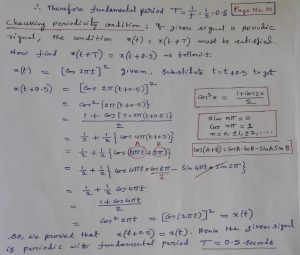 ∴ Therefore fundamental period T = 1/f = 1/2 = 0.5
Page No. 10
Checking periodicity condition: If given signal is periodic
signal, the condition x(t) = x(t+T) must be satisfied.
Now find x(t+T) = x(t+0.5) as follows:
x(t) = [cos 2πt]² given. Substitute t = t+0.5 to get
x(t+0.5) = [cos 2π(t+0.5)]²
= cos² {2π(t+0.5)}
= 1 + cos {2×2π(t+0.5)} / 2
= 1/2 + 1/2 {cos 4π(t+0.5)}
= 1/2 + 1/2 {cos (4πt + 2π)}
A B
= 1/2 + 1/2 {cos 4πt × cos 2π − sin 4πt × sin 2π}
1
= 1/2 + 1/2 cos 4πt
= 1 + cos 4πt / 2
= cos² 2πt = [cos (2πt)]² = x(t)
cos²x = 1 + cos 2x / 2
sin nπ = 0
cos nπ = 1
n = 0, ±1, ±2, ....
cos(A+B) = cosA·cosB − sinA·sinB
So, we proved that x(t+0.5) = x(t). Hence the given signal
is periodic with fundamental period T = 0.5 seconds